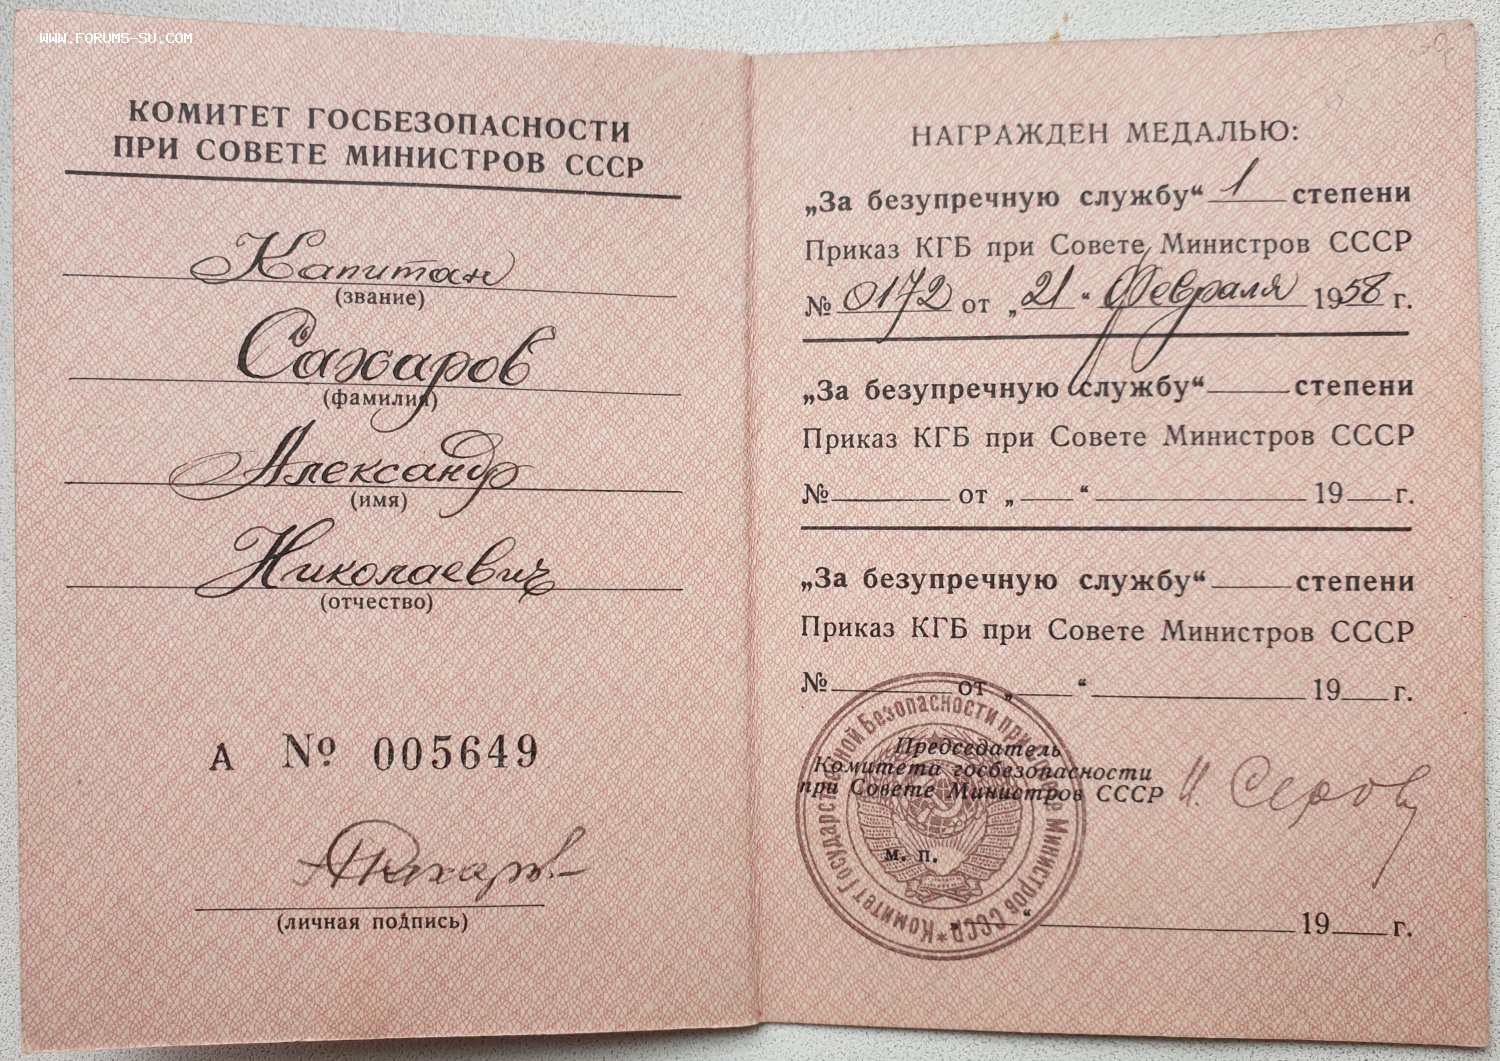 WWW.FORUMS-SU.COM
КОМИТЕТ ГОСБЕЗОПАСНОСТИ
ПРИ СОВЕТЕ МИНИСТРОВ СССР
Капитан
(звание)
Сахаров
(фамилия)
Александр
(имя)
Николаевич
(отчество)
А № 005649
(личная подпись)
НАГРАЖДЕН МЕДАЛЬЮ:
„За безупречную службу“ 1 степени
Приказ КГБ при Совете Министров СССР
№ 0172 от „21“ февраля 1958 г.
„За безупречную службу“ степени
Приказ КГБ при Совете Министров СССР
№ от „ “ 19 г.
„За безупречную службу“ степени
Приказ КГБ при Совете Министров СССР
№ от „ “ 19 г.
Председатель
Комитета госбезопасности
при Совете Министров СССР И. Серов
м. п.
„ “ 19 г.
Комитет Государственной Безопасности при Совете Министров СССР